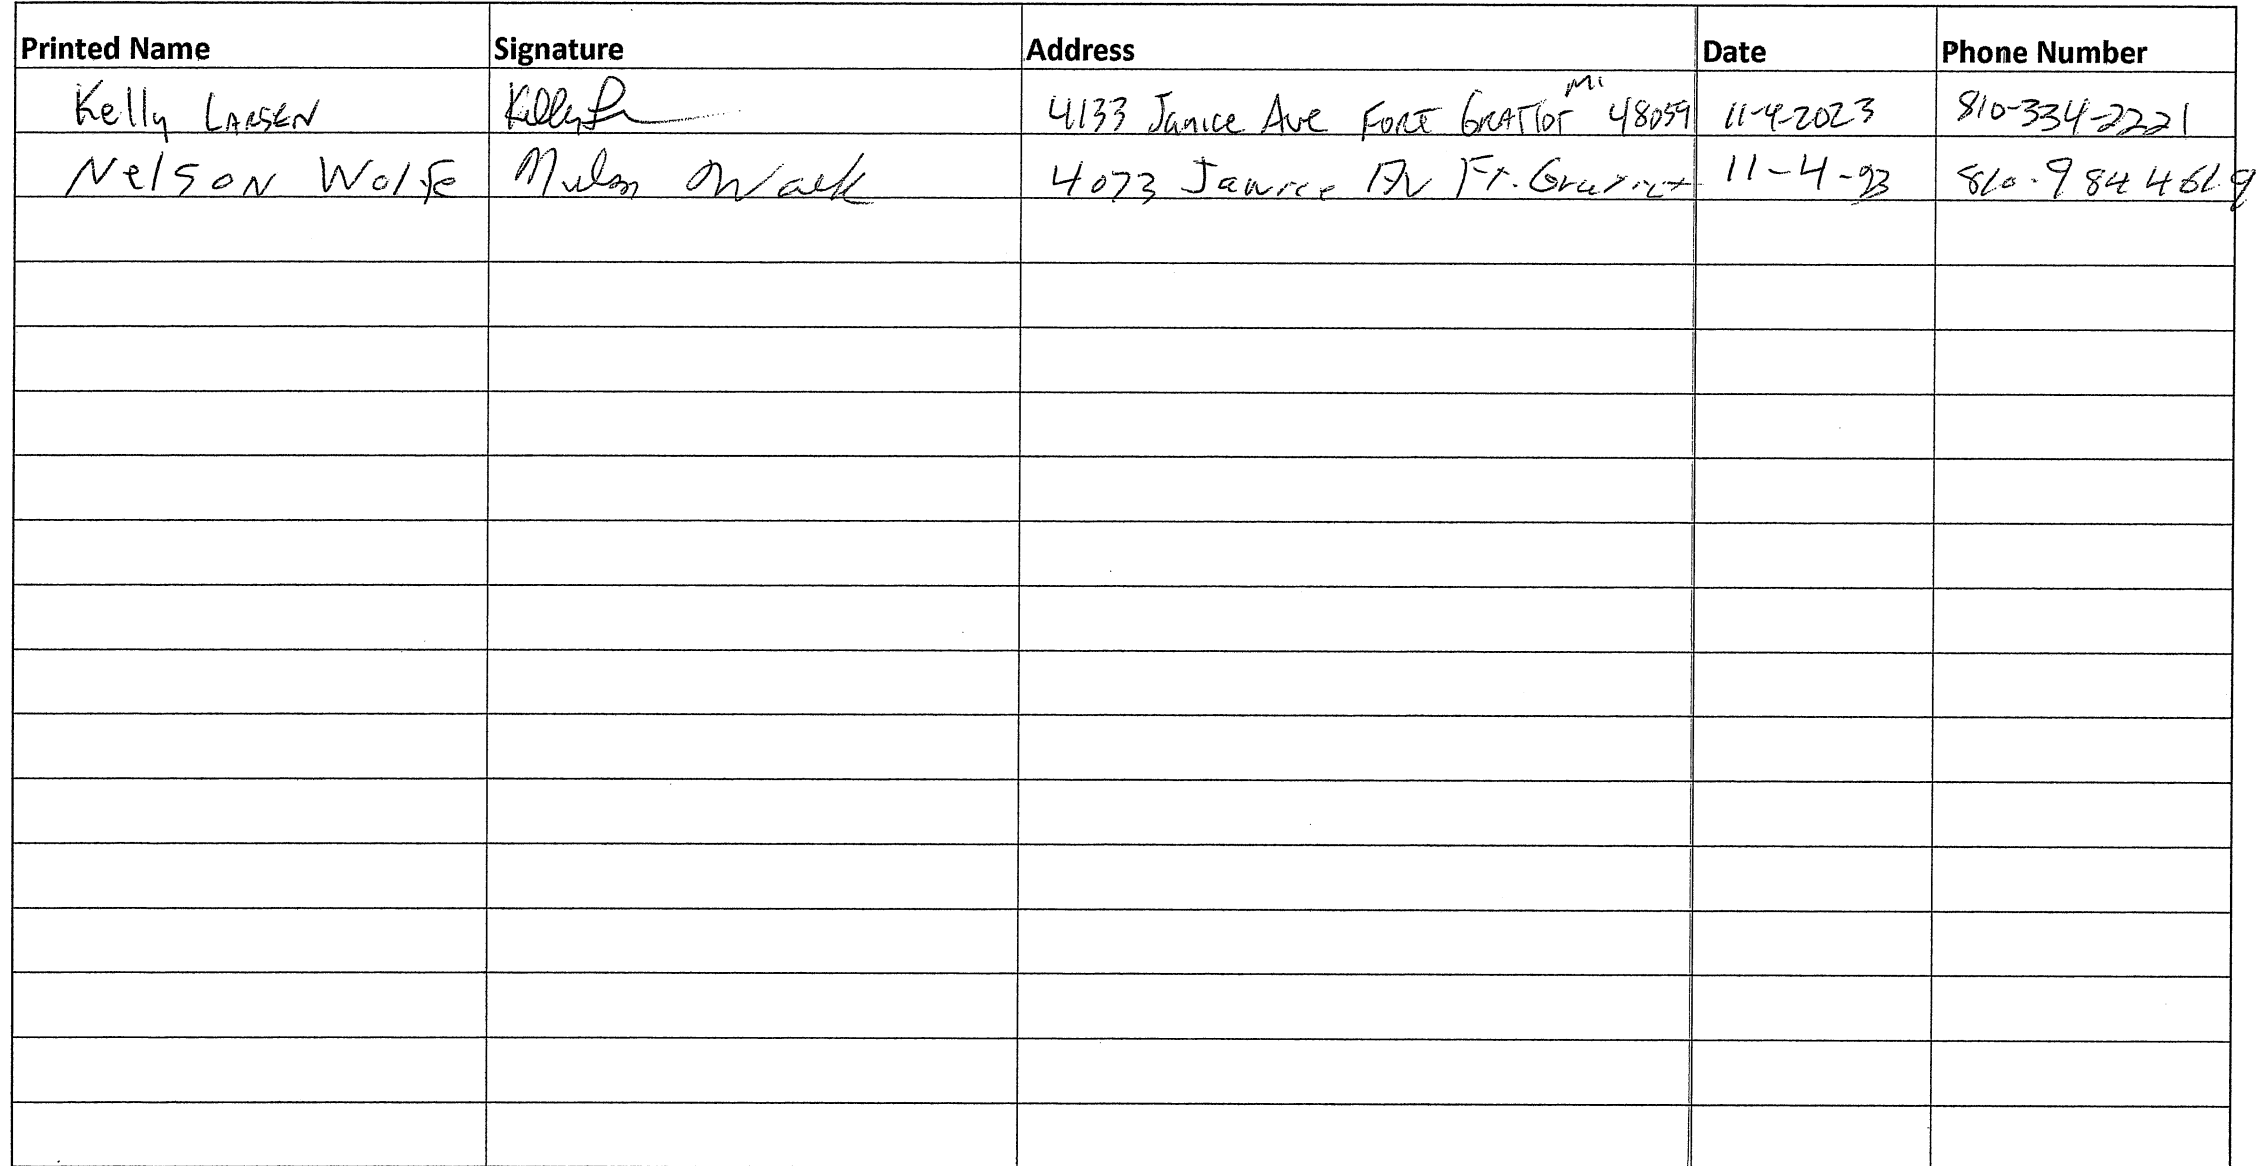 Printed Name Signature Address Date Phone Number
Kelly LARSEN Kelly L 4133 Janice Ave FORT GRATIOT MI 48059 11-4-2023 810-334-2221
Nelson Wolfe 4073 Janice Av Ft. Gratiot 11-4-23 810-984 4619